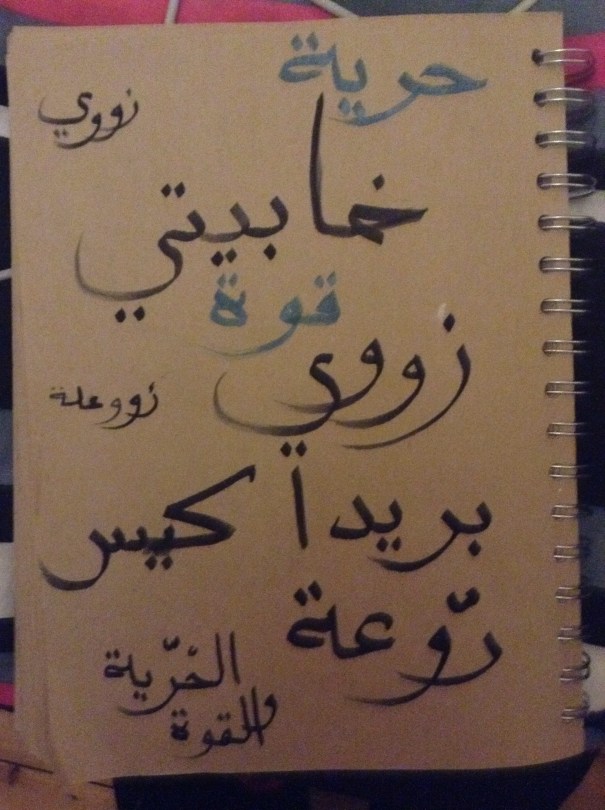 حرية
زووي
خمابيتي
قوة
زووي
زووعلة
بريدا كيس
روّعة
الحرّية
والقوة